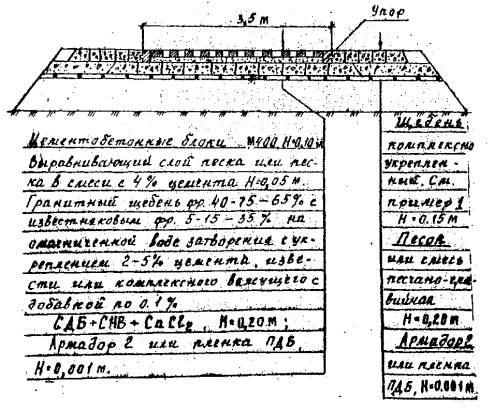 3,5 м
Упор
Цементобетонные блоки М400, Н=0,10 м
Выравнивающий слой песка или пес-
ка в смеси с 4% цемента Н=0,05м.
Гранитный щебень фр. 40-75-65% с
известняковым фр. 5-15-35% на
омагниченной воде затворения с ук-
реплением 2-5% цемента, изве-
сти или комплексного вяжущего с
добавкой по 0.1%
СДБ+СНВ+CaCl2, Н=0,20м;
Армадор 2 или пленка ПДБ,
Н=0,001м.
Щебень
комплексно
укреплен-
ный. См.
пример 1
Н=0.15м
Песок
или смесь
песчано-гра-
вийная
Н=0,20м
Армадор2
или пленка
ПДБ, Н=0.001м.